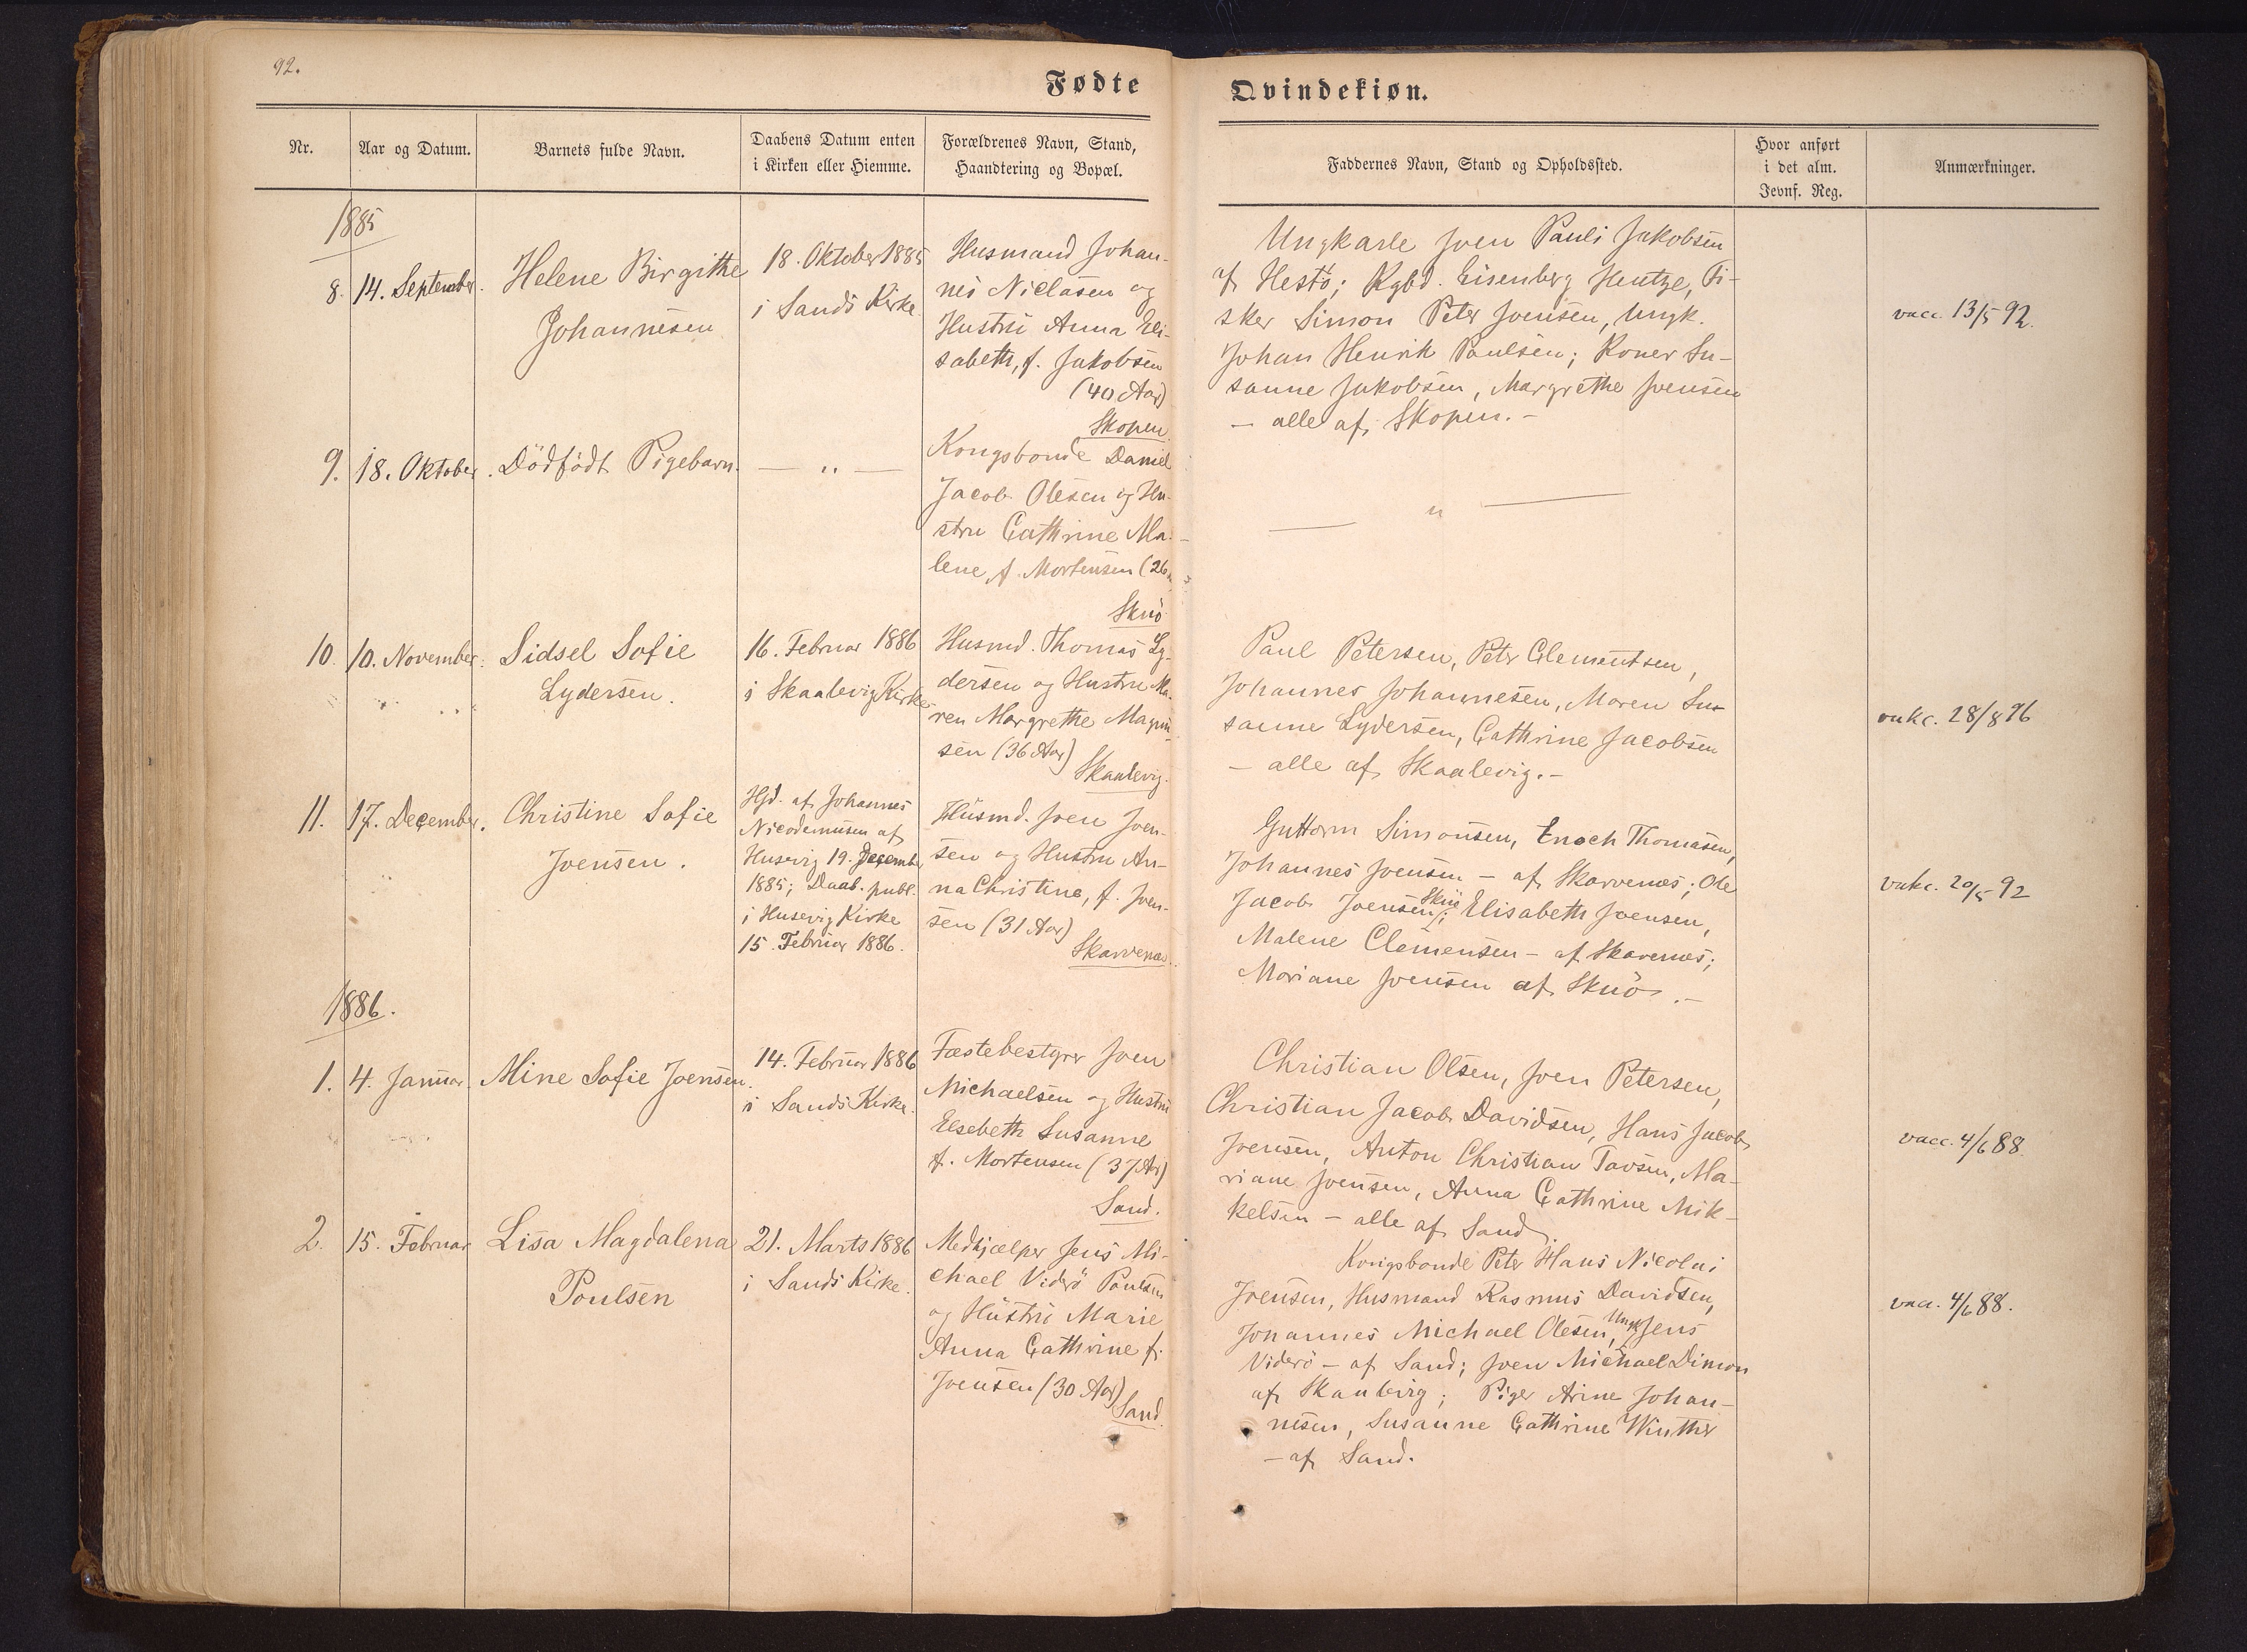 92.
Fødte
Qvindekiøn.
Nr.
Aar og Datum.
Barnets fulde Navn.
Daabens Datum enten
i Kirken eller Hiemme.
Forældrenes Navn, Stand,
Haandtering og Bopæl.
Faddernes Navn, Stand og Opholdssted.
Hvor anført
i det alm.
Jevnf. Reg.
Anmærkninger.
1885
8.
14. September.
Helene Birgithe
Johannesen
18. Oktober 1885
i Sands Kirke.
Husmand Johan-
nes Niclasen og
Hustru Anna Eli-
sabeth, f. Jakobsen
(40 Aar)
Skopen.
Ungkarle Joen Pauli Jakobsen
af Hestö; Kgbd. Eisenberg Hentze, Fi-
sker Simon Peter Joensen, Ungk.
Johan Henrik Paulsen; Koner Su-
sanne Jakobsen, Margrethe Joensen
- alle af Skopen. -
vacc. 13/5 92.
9.
18. Oktober.
Dödfödt Pigebarn.
— " —
Kongsbonde Daniel
Jacob Olesen og Hu-
stru Cathrine Ma-
lene, f. Mortensen (26
Skuö
— " —
10.
10. November.
Sidsel Sofie
Lydersen.
16. Februar 1886
i Skaalevig Kirke
Husmd. Thomas Ly-
dersen og Hustru Ma-
ren Margrethe Magnu-
sen (36 Aar)
Skaalevig.
Paul Petersen, Peter Clementsen,
Johannes Johannesen, Maren Su-
sanne Lydersen, Cathrine Jacobsen
- alle af Skaalevig. -
vakc. 28/8 96
11.
17. December.
Christine Sofie
Joensen.
Hjd. af Johannes
Nicodemusen af
Husevig 19. Decemb
1885; Daab. publ.
i Husevig Kirke
15. Februar 1886.
Husmd. Joen Joen-
sen og Hustru An-
na Christine, f. Joen-
sen (31 Aar)
Skarvenæs.
Guttorm Simonsen, Enoch Thomasen,
Johannes Joensen - af Skarvenæs; Ole
Jacob Joensen Skuö; Elisabeth Joensen,
Malene Clemensen - af Skarvenæs;
Mariane Joensen af Skuö. -
vakc. 20/5 92
1886.
1.
4. Januar.
Mine Sofie Joensen.
14. Februar 1886
i Sands Kirke.
Fæstebestyrer Joen
Michaelsen og Hustru
Elsebeth Susanne
f. Mortensen (37 Aar)
Sand.
Christian Olsen, Joen Petersen,
Christian Jacob Davidsen, Hans Jacob
Joensen, Anton Christian Tavsen, Ma-
riane Joensen, Anna Cathrine Mik-
kelsen - alle af Sand.
vacc. 4/6 88
2.
15. Februar
Lisa Magdalena
Poulsen
21. Marts 1886
i Sands Kirke.
Medhjælper Jens Mi-
chael Viderö Poulsen
og Hustru Marie
Anna Cathrine f.
Joensen (30 Aar)
Sand.
Kongsbonde Peter Hans Nicolai
Joensen, Husmand Rasmus Davidsen,
Johannes Michael Olesen, Ungk. Jens
Viderö - af Sand; Joen Michael Dimon
af Skaalevig; Piger Arine Johan-
nesen, Susanne Cathrine Winther
- af Sand.
vacc. 4/6 88.